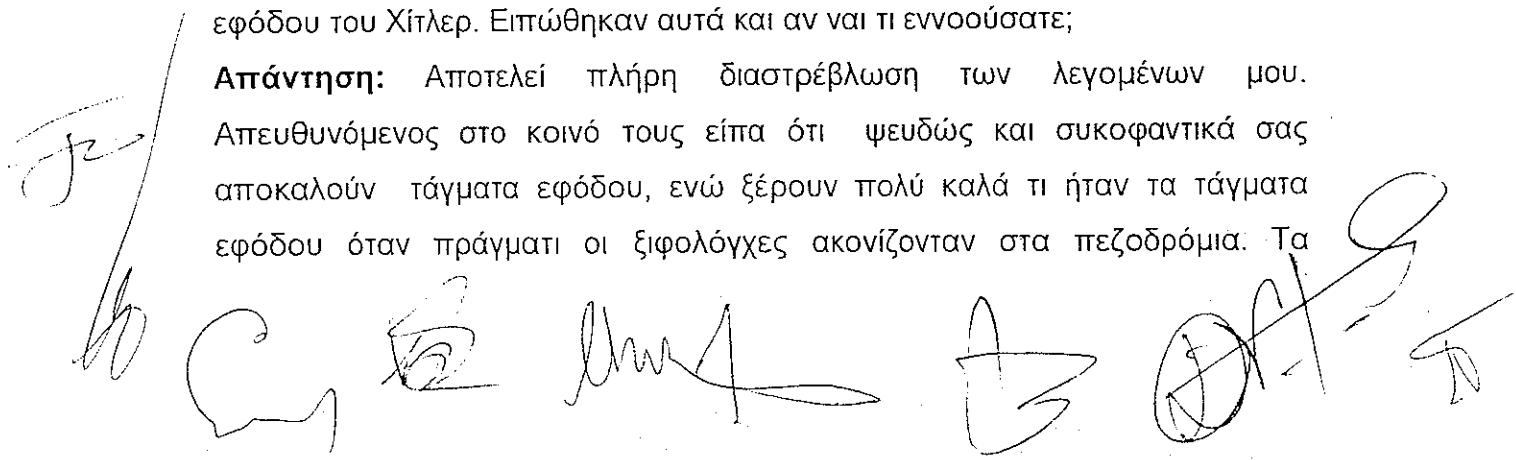 εφόδου του Χίτλερ. Ειπώθηκαν αυτά και αν ναι τι εννοούσατε;
Απάντηση: Αποτελεί πλήρη διαστρέβλωση των λεγομένων μου.
Απευθυνόμενος στο κοινό τους είπα ότι ψευδώς και συκοφαντικά σας
αποκαλούν τάγματα εφόδου, ενώ ξέρουν πολύ καλά τι ήταν τα τάγματα
εφόδου όταν πράγματι οι ξιφολόγχες ακονίζονταν στα πεζοδρόμια. Τα